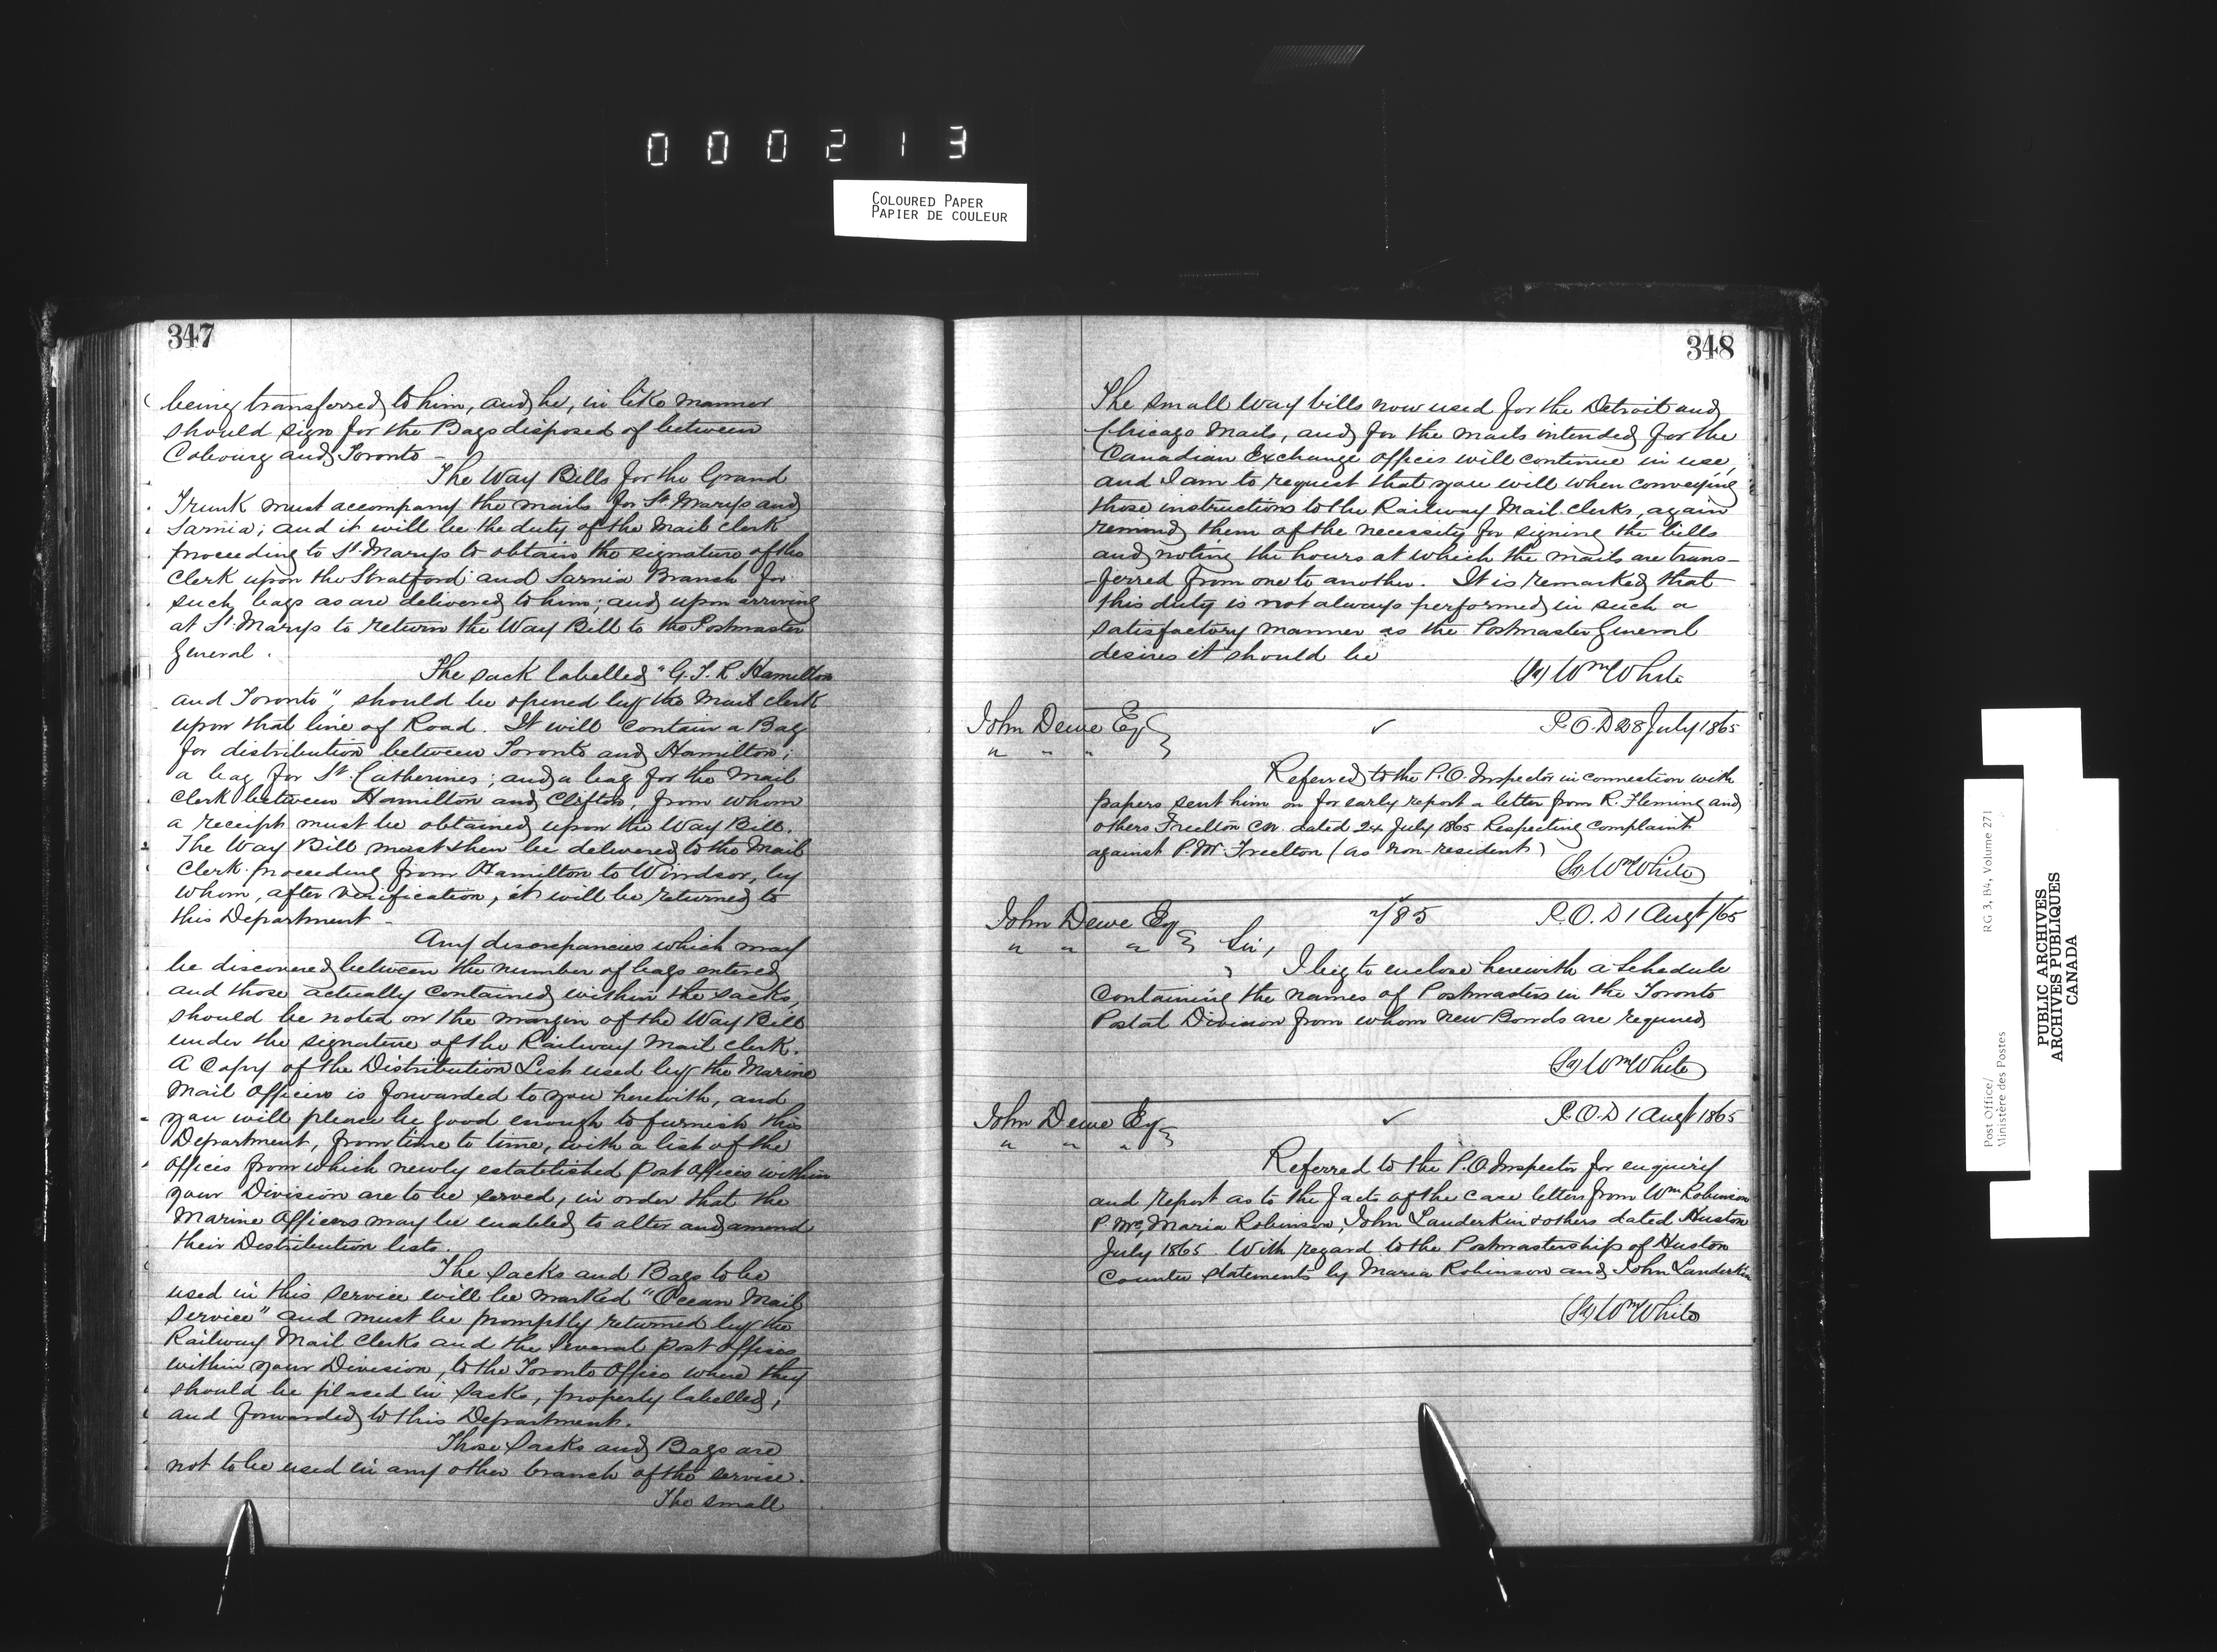 000213
COLOURED PAPER
PAPIER DE COULEUR
347
being transferred to him, and he, in like manner
should sign for the Bags disposed of between
Cobourg and Toronto -
The Way Bills for the Grand
Trunk must accompany the mails for St. Marys and
Sarnia; and it will be the duty of the Mail Clerk
proceeding to St. Marys to obtain the signature of the
Clerk upon the Stratford and Sarnia Branch for
such bags as are delivered to him; and upon arriving
at St. Marys to return the Way Bill to the Postmaster
General.
The sack labelled "G.T.R. Hamilton
and Toronto", should be opened by the Mail Clerk
upon that line of Road. It will contain a Bag
for distribution between Toronto and Hamilton;
a bag for St. Catherines; and a bag for the Mail
Clerk between Hamilton and Clifton, from whom
a receipt must be obtained upon the Way Bill.
The Way Bill must then be delivered to the Mail
Clerk proceeding from Hamilton to Windsor, by
whom, after verification, it will be returned to
this Department -
Any discrepancies which may
be discovered between the number of bags entered
and those actually contained within the sacks,
should be noted on the margin of the Way Bill
under the signature of the Railway Mail Clerk.
A Copy of the Distribution List used by the Marine
Mail Officers is forwarded to you herewith, and
you will please be good enough to furnish this
Department, from time to time, with a list of the
offices from which newly established Post Offices within
your Division are to be served, in order that the
Marine Officers may be enabled to alter and amend
their Distribution lists.
The Sacks and Bags to be
used in this service will be marked "Ocean Mail
Service" and must be promptly returned by the
Railway Mail Clerks and the several Post Offices
within your Division, to the Toronto Office where they
should be placed in Sacks, properly labelled,
and forwarded to this Department.
Those Sacks and Bags are
not to be used in any other branch of the service.
The small
348
The small Way bills now used for the Detroit and
Chicago Mails, and for the mails intended for the
Canadian Exchange offices will continue in use,
and I am to request that you will when conveying
those instructions to the Railway Mail Clerks, again
remind them of the necessity for signing the bills
and noting the hours at which the mails are trans-
-ferred from one to another. It is remarked that
this duty is not always performed in such a
satisfactory manner as the Postmaster General
desires it should be
(Sd) Wm White
John Dewe Esq ✓ P.O.D 28 July 1865
" " "
Referred to the P.O. Inspector in connection with
papers sent him on for early report a letter from R. Fleming and
others Freelton C.W. dated 24 July 1865 Respecting Complaint
against P.M. Freelton (as non-resident)
(Sd) Wm White
John Dewe Esq 785 P.O.D 1 Augt /65
" " " Sir,
I beg to enclose herewith a Schedule
Containing the names of Postmasters in the Toronto
Postal Division from whom New Bonds are required
(Sd) Wm White
John Dewe Esq ✓ P.O.D 1 Augt 1865
" " "
Referred to the P.O. Inspector for enquiry
and report as to the facts of the case letters from Wm Robinson
Maria Robinson, John Landerkin & others dated Huston
July 1865. With regard to the Postmastership of Huston
Counter statements by Maria Robinson and John Landerkin
(Sd) Wm White
Post Office/
Ministère des Postes
RG 3, B4, Volume 271
PUBLIC ARCHIVES
ARCHIVES PUBLIQUES
CANADA